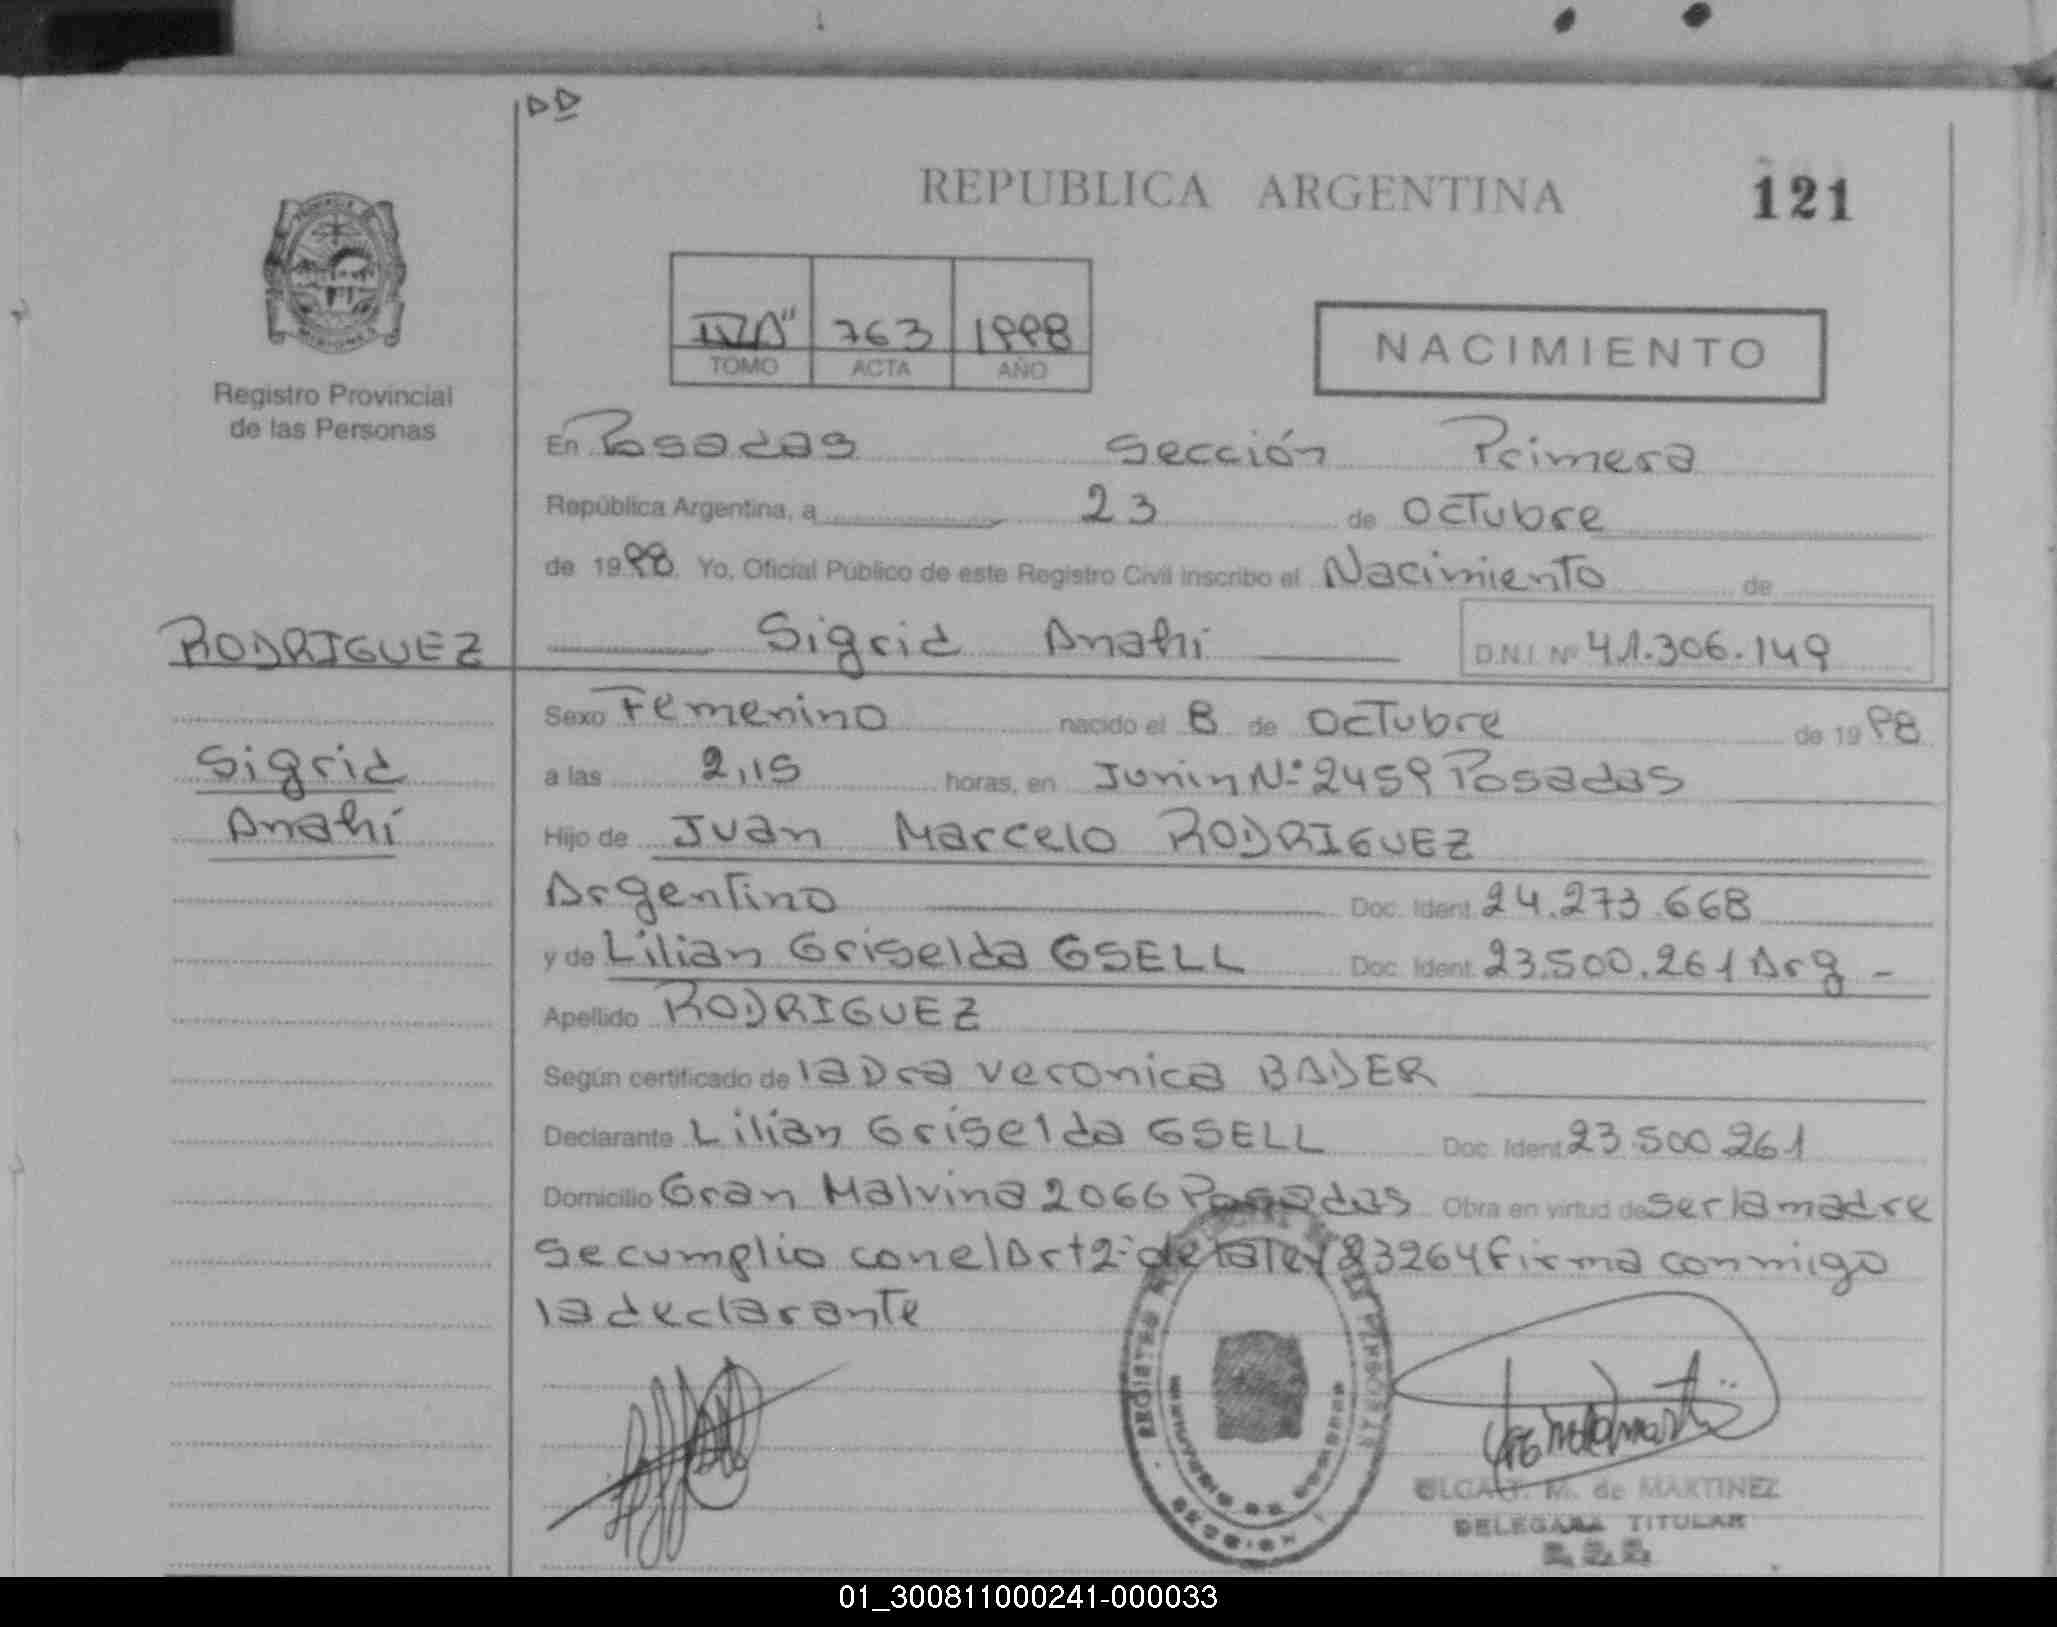 REPUBLICA ARGENTINA
121
763
1998
TOMO
ACTA
AÑO
NACIMIENTO
Registro Provincial
de las Personas
En Posadas Sección Primera
República Argentina, a 23 de Octubre
de 1998 Yo, Oficial Público de este Registro Civil inscribo el Nacimiento de
RODRIGUEZ
Sigrid Anahi
D.N.I. Nº 41.306.149
Sexo Femenino nacido el 8 de Octubre de 1998
Sigrid
a las 2,15 horas, en Junin Nº 2459 Posadas
Anahí
Hijo de Juan Marcelo RODRIGUEZ
Argentino Doc. Ident. 24.273.668
y de Lilian Griselda GSELL Doc. Ident. 23.500.261 Arg -
Apellido RODRIGUEZ
Según certificado de la Dra Veronica BADER
Declarante Lilian Griselda GSELL Doc. Ident 23.500.261
Domicilio Gran Malvina 2066 Posadas Obra en virtud de ser la madre
se cumplio con el Art 2º de la ley 23264 firma conmigo
la declarante
M. de MARTINEZ
DELEGADA TITULAR
01_300811000241-000033